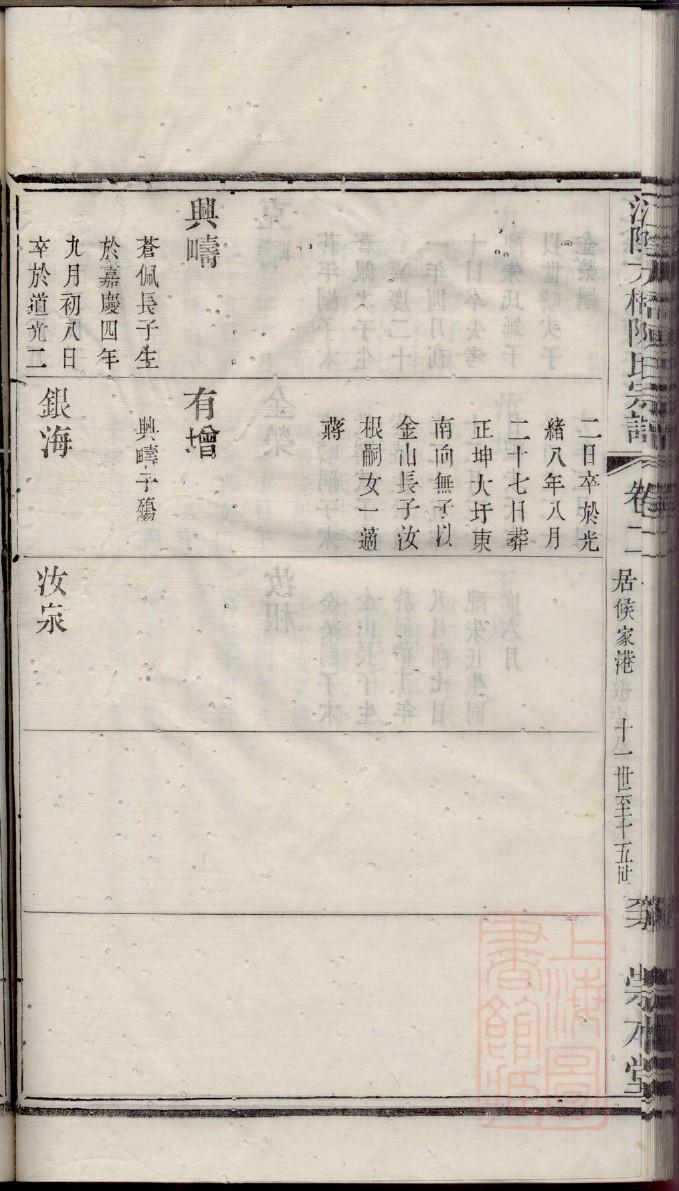 興疇
蒼佩長子生
於嘉慶四年
九月初八日
卒於道光二
二日卒於光
緒八年八月
二十七日葬
正坤大圩東
南向無子以
金山長子汝
根嗣女一適
蔣
有增
興疇子殤
銀海
汝泉
氏宗譜
卷二
居候家港
十一世至十五世
堂
上海圖書館藏